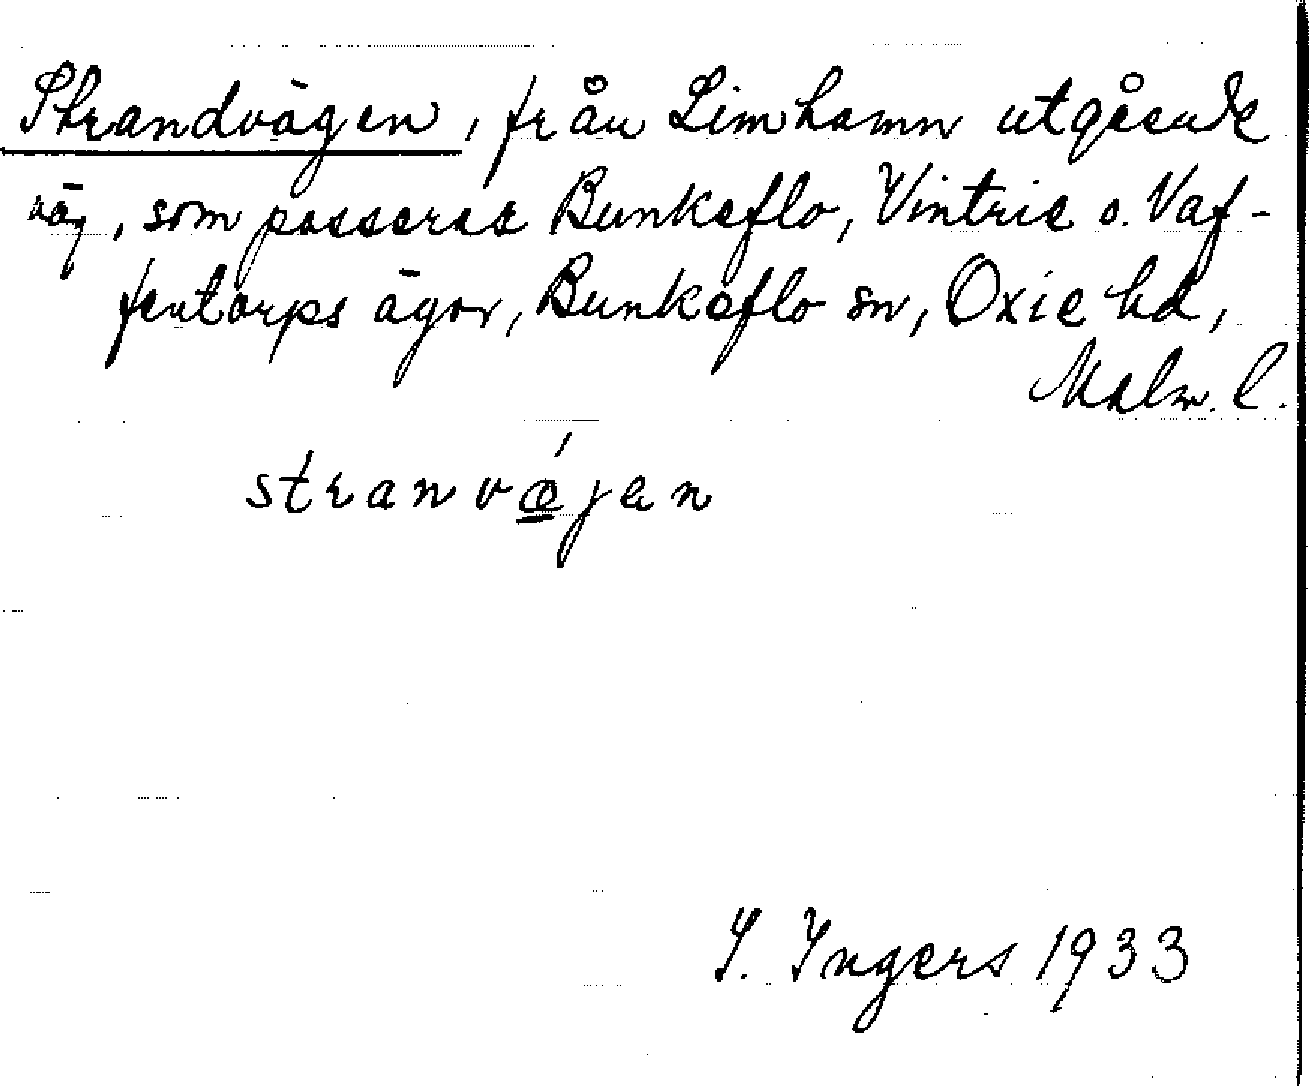 Strandvägen, från Limhamn utgående
väg, som passerar Bunkeflo, Vintrie o. Vaf-
fentorps ägor, Bunkeflo sn, Oxie hd,
Malm. l.
stranvǽjen
I. Ingers 1933